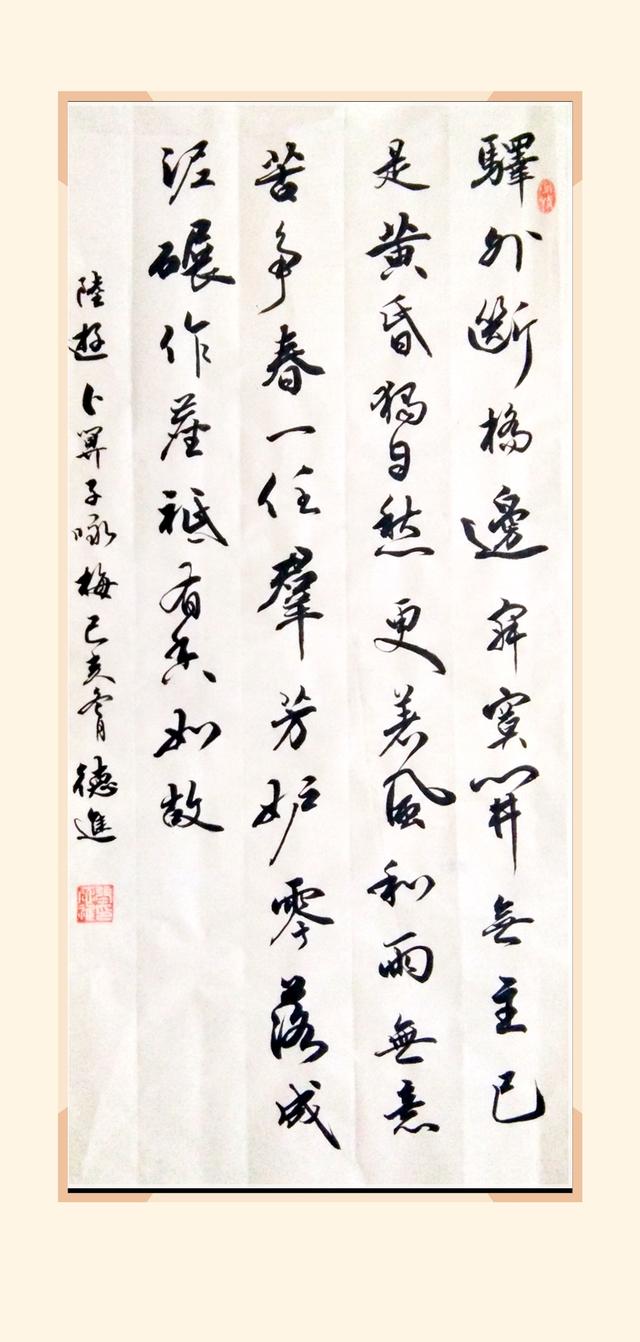 驛外斷橋邊寂寞開無主已
是黄昏獨自愁更着風和雨無意
苦争春一任羣芳妒零落成
泥碾作塵祗有香如故
陸游卜算子咏梅己亥冬月德進